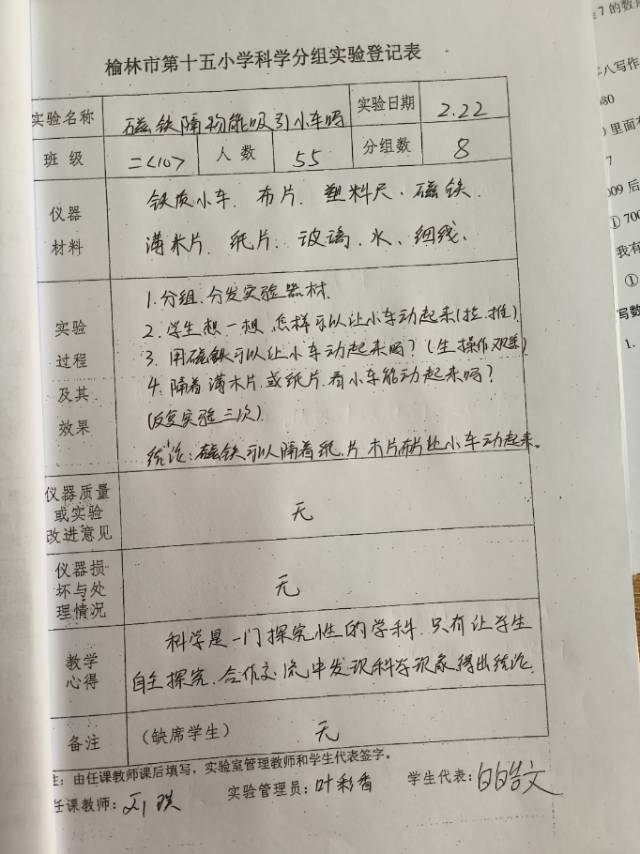 榆林市第十五小学科学分组实验登记表
实验名称 磁铁隔物能吸引小车吗 实验日期 2.22
班级 二<10> 人数 55 分组数 8
仪器材料
铁质小车、布片、塑料尺、磁铁、
薄木片、纸片、玻璃、水、细线、
实验过程及其效果
1.分组、分发实验器材.
2.学生想一想,怎样可以让小车动起来(拉、推).
3.用磁铁可以让小车动起来吗?(生操作观察)
4.隔着薄木片或纸片,看小车能动起来吗?
(反复实验三次).
结论:磁铁可以隔着纸片 木片 布片让小车动起来。
仪器质量或实验改进意见 无
仪器损坏与处理情况 无
教学心得
科学是一门探究性的学科.只有让学生
自主探究、合作交流中发现科学现象得出结论.
备注 (缺席学生) 无
注:由任课教师课后填写,实验室管理教师和学生代表签字。
任课教师: 实验管理员:叶彩香 学生代表:
7的数
八写作
里面有
7
009后
①700
我有
①
写数
1.